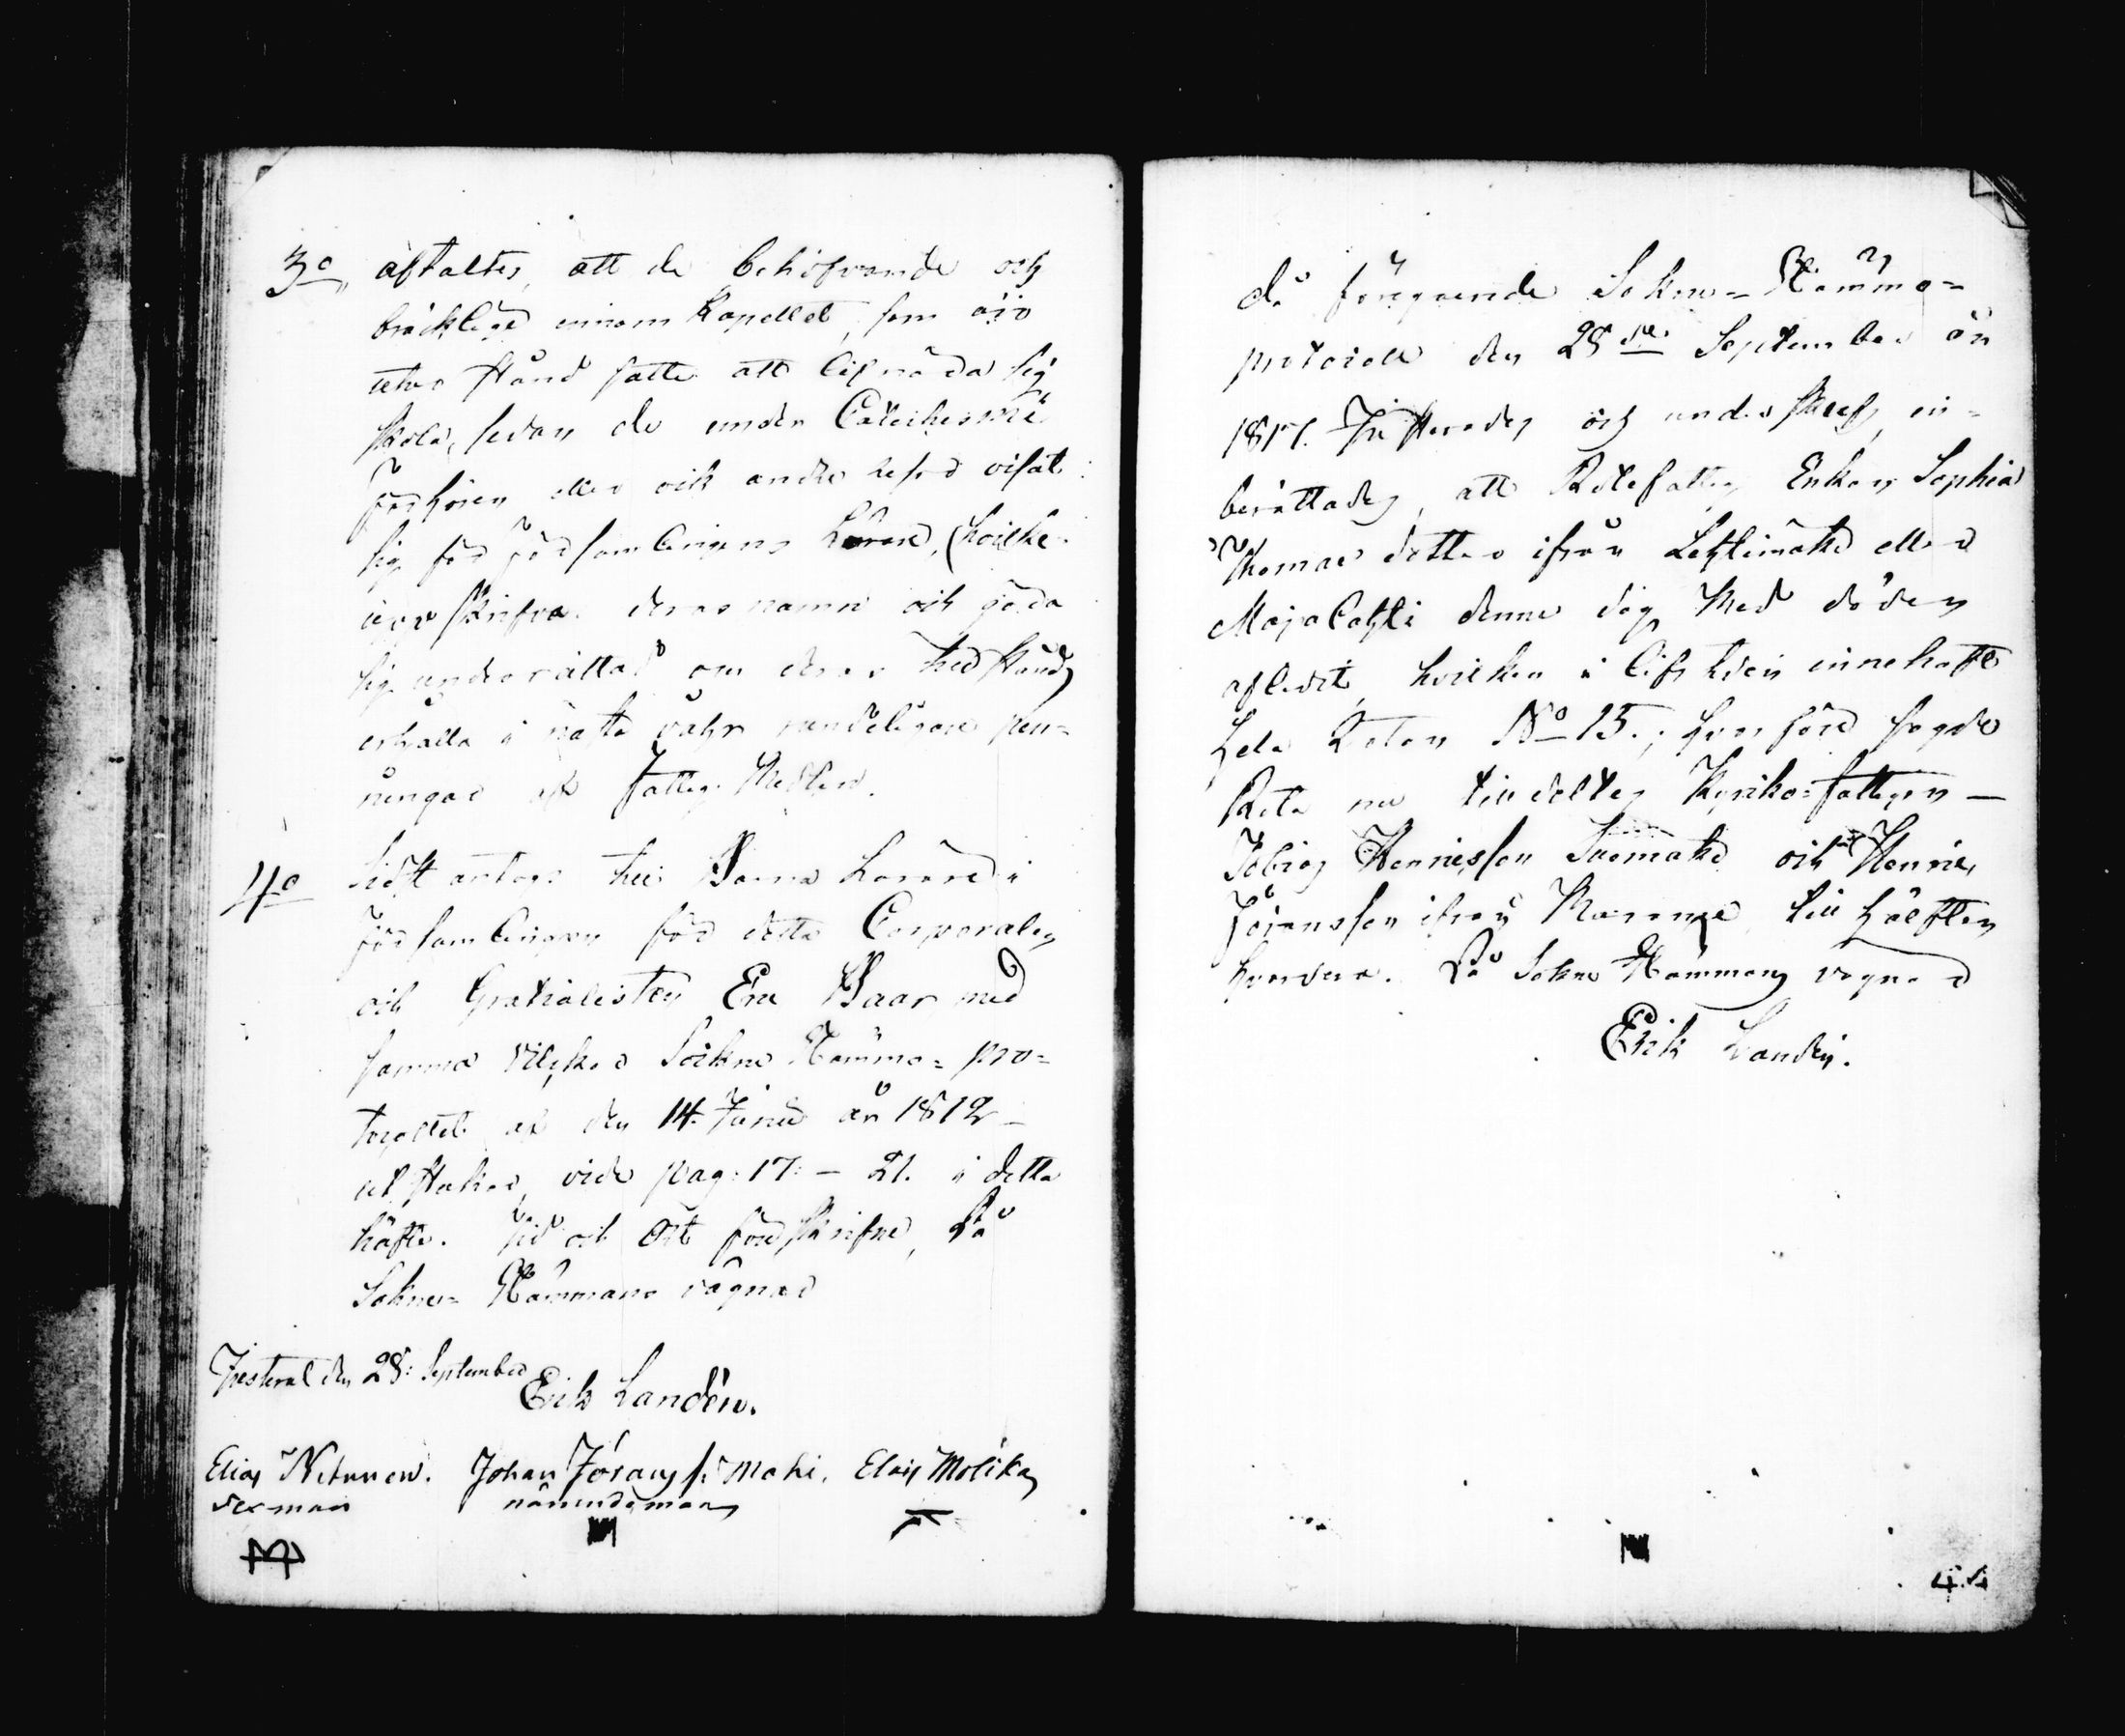 3o, aftaltes, att de behöfvande och
bräcklige innom Kapellet, som äro
utur stånd satte att lifnära sig
skola, sedan de under Catechismi
Förhören eller ock andre tider visat
sig för församlingens Lärare, (hvilke
upskrifva deras namn och göra
sig underrättad om deras tilstånd)
erhålla i nästa vahr vandeligare pen-
ningar af fattig Medlen.
4o Sidst antogs till Barna Lärare i
församlingen för detta Corporalen
och Gratialisten Eric Baar med
samma vilkor Sockne Stämmo-pro-
tocollet af den 14. Junii år 1812
utstakar, vide pag: 17: - 21. i detta
häfte. Tid och Ort förr skrifne, På
Sokne-Stämmans vägnar
Justerat den 28: September
Erik Landén.
Elias Netunen. Johan Jöransf: Mahi. Elois Molikas
sexman nämndeman
Då föregående Sokne-Stämmo-
protocoll den 28de September år
1817. Justerades och underskrefs, in-
berättades, att Rotefattig Enkan Sophia
Thomasdotter ifrån Lehtimäki eller
Majalahti denne dag Med döden
aflidit, hvilken i lifstiden innehaft
hela Roten No 15.; hvarföre sagde
Rota nu tilldeltes Kyrko-fattigen —
Tobias Henricsson Suomäki och Henric
Jöransson ifrån till hälften
hvardera. På Sokne Stämmans vegnar
Erik Landén.
44